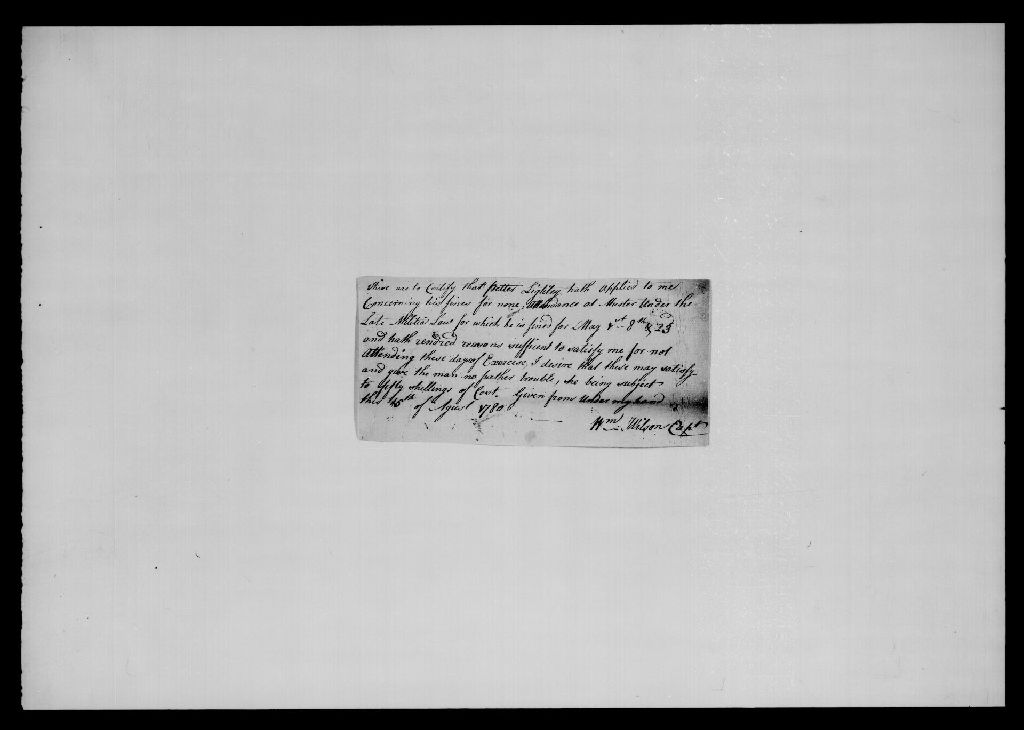 These are to Certify that Peter Lighley hath applied to me
Concerning his fines for none Attendance at Muster Under the
Late Militia Law for which he is fined for May 1st 8th & 23
and hath rendred reasons sufficent to satisfy me for not
Attending these days of Exercise, I desire that these may satisfy
and give the man no further trouble, he being subject
to fifty shillings of Cost. Given from Under my hand
this 15th of Agust 1780
Wm Wilson Capt